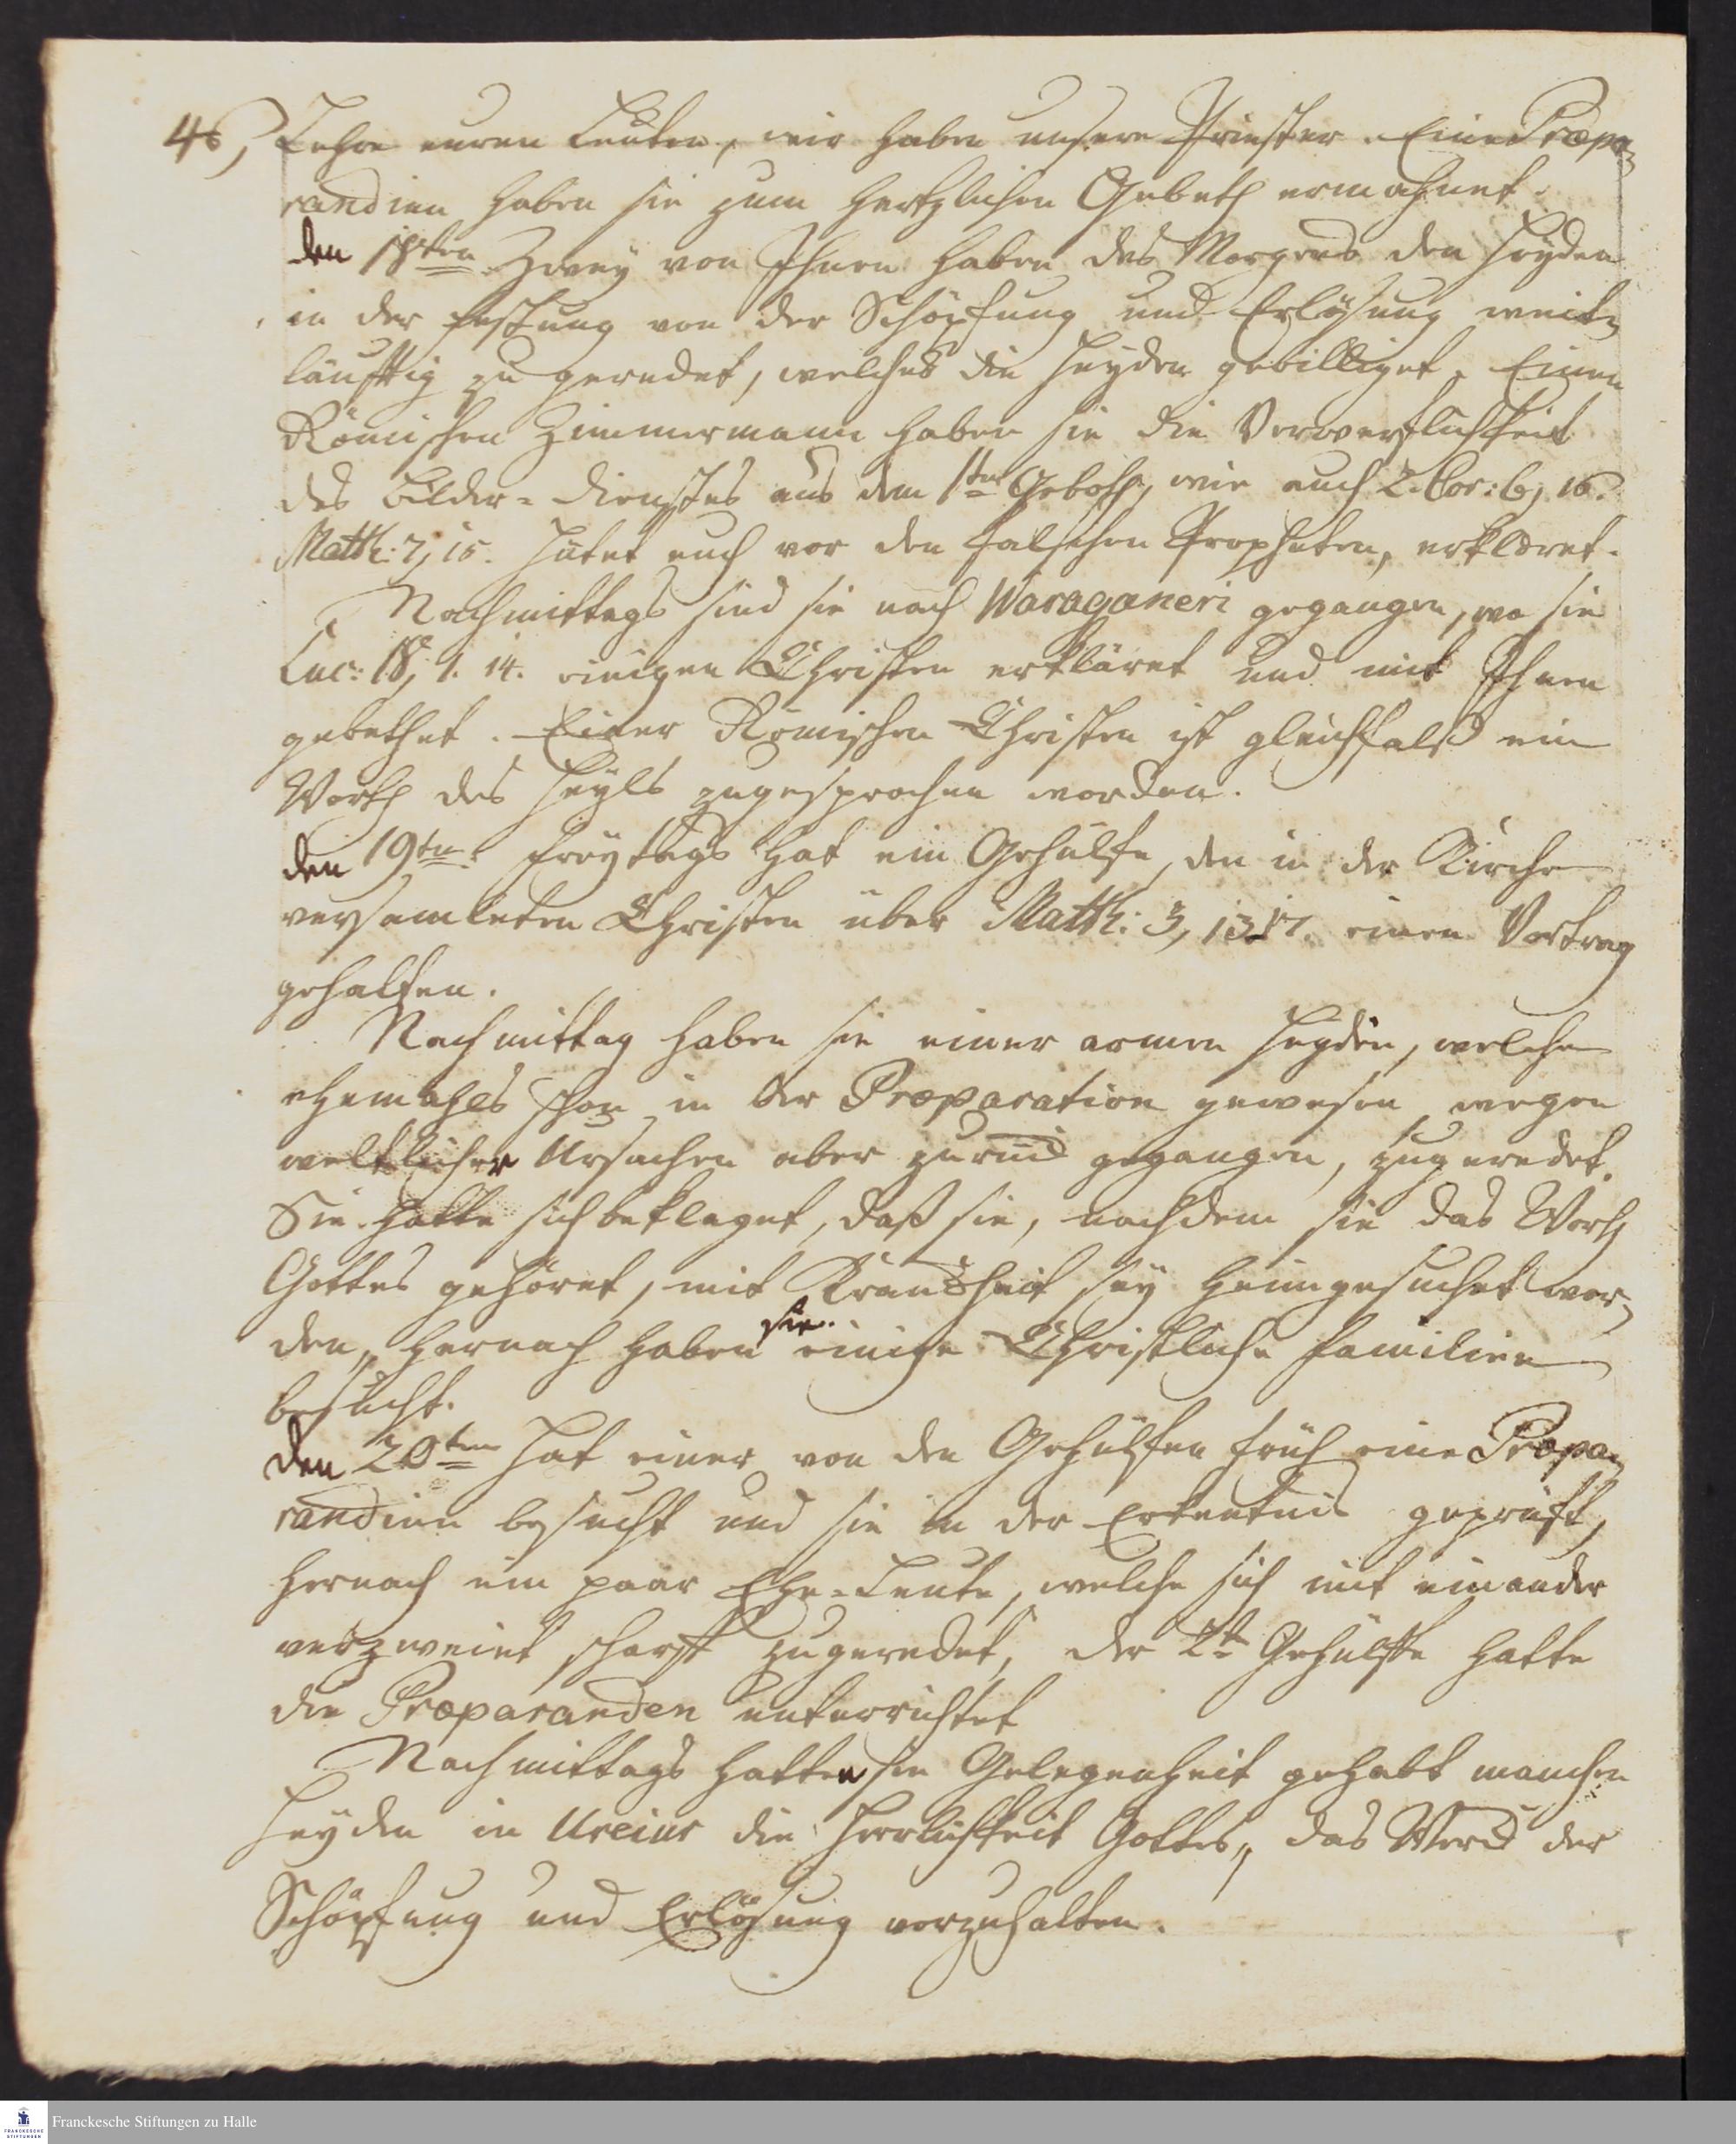 46, Lehre euren Leuten, wir haben unsere Priester. Eine Præpa-
randinn haben sie zum hertzlichen Gebeth ermahnet.
den 18ten Zwey von Ihnen haben des Morgens den Heyden
in der Festung von der Schöpfung und Erlösung weit-
läufftig zu geredet, welches die Heyden gebilliget. Einen
Römischen Zimmermann haben sie die Verwerflichkeit
des Bilder-Dienstes aus dem 1ten Geboth, wie auch 2. Cor: 6, 16.
Matth: 7, 15. Hütet euch vor den falschen Propheten, erkläret.
Nachmittags sind sie nach Waraganeri gegangen, wo sie
Luc: 18, 1. 14. einigen Christen erkläret und mit Ihnen
gebethet. Einer Römischen Christen ist gleichfalß ein
Worth des Heyls zugesprochen worden.
den 19ten Freytags hat ein Gehülfe, den in der Kirche
versamleten Christen über Matth: 3, 13-17. einen Vortrag
gehalten.
Nachmittag haben sie einer armen Heydin, welche
ehemahls schon in der Præparation gewesen, wegen
weltlicher Ursachen aber zurück gegangen, zugeredet.
Sie hatte sich beklaget, daß sie, nachdem sie das Worth
Gottes gehöret, mit Kranckheit sey heimgesuchet wor-
den, hernach haben sie einige Christliche Familien
besucht.
den 20ten hat einer von den Gehülfen früh eine Præpa-
randinn besucht und sie in der Erkentnis geprüft,
hernach ein paar Ehe-Leute, welche sich mit einander
verzweiet scharff zugeredet, der 2te Gehülffe hatte
die Præparanden unterrichtet
Nachmittags hatten sie Gelegenheit gehabt manchen
Heyden in Ureiur die Herrlichkeit Gottes, das Werck der
Schöpfung und Erlösung vorzuhalten.
FRANCKESCHE STIFTUNGEN
Franckesche Stiftungen zu Halle